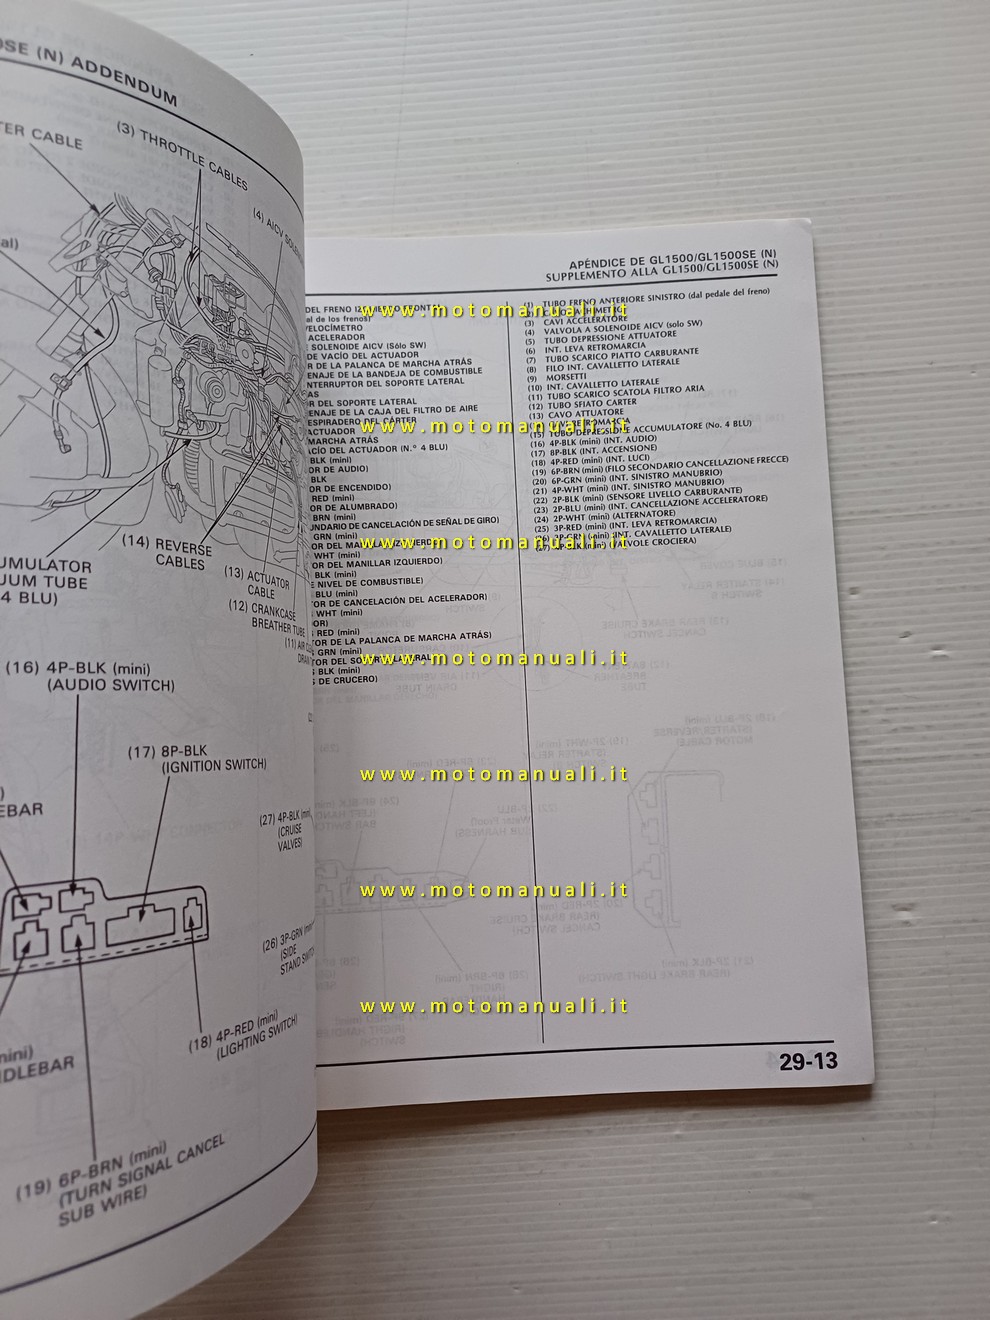 SE (N) ADDENDUM
TER CABLE
(3) THROTTLE CABLES
(4) AICV
al)
(14) REVERSE
CABLES
(13) ACTUATOR
CABLE
(12) CRANKCASE
BREATHER TUBE
UMULATOR
UUM TUBE
4 BLU)
(16) 4P-BLK (mini)
(AUDIO SWITCH)
(17) 8P-BLK
(IGNITION SWITCH)
EBAR
(27) 4P-BLK (mini)
(CRUISE
VALVES)
(26) 3P-GRN
(SIDE
STAND SWITCH
(18) 4P-RED (mini)
(LIGHTING SWITCH)
mini)
DLEBAR
(19) 6P-BRN (mini)
(TURN SIGNAL CANCEL
SUB WIRE)
APÉNDICE DE GL1500/GL1500SE (N)
SUPPLEMENTO ALLA GL1500/GL1500SE (N)
DEL FRENO
al de los frenos)
VELOCÍMETRO
ACELERADOR
SOLENOIDE AICV (Sólo SW)
DE VACÍO DEL ACTUADOR
R DE LA PALANCA DE MARCHA ATRÁS
ENAJE DE LA BANDEJA DE COMBUSTIBLE
NTERRUPTOR DEL SOPORTE LATERAL
AS
OR DEL SOPORTE LATERAL
ENAJE DE LA CAJA DEL FILTRO DE AIRE
ESPIRADERO DEL CÁRTER
ACTUADOR
MARCHA ATRÁS
ACÍO DEL ACTUADOR (N.° 4 BLU)
BLK (mini)
OR DE AUDIO)
BLK
OR DE ENCENDIDO)
RED (mini)
OR DE ALUMBRADO)
BRN (mini)
UNDARIO DE CANCELACIÓN DE SEÑAL DE GIRO)
GRN (mini)
OR DEL MANILLAR IZQUIERDO)
WHT (mini)
OR DEL MANILLAR IZQUIERDO)
BLK (mini)
E NIVEL DE COMBUSTIBLE)
BLU (mini)
TOR DE CANCELACIÓN DEL ACELERADOR)
WHT (mini)
OR)
RED (mini)
TOR DE LA PALANCA DE MARCHA ATRÁS)
GRN (mini)
TOR DEL SOPORTE LATERAL
BLK (mini)
S DE CRUCERO)
(1) TUBO FRENO ANTERIORE SINISTRO (dal pedale del freno)
(3) CAVI ACCELERATORE
(4) VALVOLA A SOLENOIDE AICV (solo SW)
(5) TUBO DEPRESSIONE ATTUATORE
(6) INT. LEVA RETROMARCIA
(7) TUBO SCARICO PIATTO CARBURANTE
(8) FILO INT. CAVALLETTO LATERALE
(9) MORSETTI
(10) INT. CAVALLETTO LATERALE
(11) TUBO SCARICO SCATOLA FILTRO ARIA
(12) TUBO SFIATO CARTER
(13) CAVO ATTUATORE
(15) TUBO DEPRESSIONE ACCUMULATORE (No. 4 BLU)
(16) 4P-BLK (mini) (INT. AUDIO)
(17) 8P-BLK (INT. ACCENSIONE)
(18) 4P-RED (mini) (INT. LUCI)
(19) 6P-BRN (mini) (FILO SECONDARIO CANCELLAZIONE FRECCE)
(20) 6P-GRN (mini) (INT. SINISTRO MANUBRIO)
(21) 4P-WHT (mini) (INT. SINISTRO MANUBRIO)
(22) 2P-BLK (mini) (SENSORE LIVELLO CARBURANTE)
(23) 2P-BLU (mini) (INT. CANCELLAZIONE ACCELERATORE)
(24) 2P-WHT (mini) (ALTERNATORE)
(25) 3P-RED (mini) (INT. LEVA RETROMARCIA)
(26) 3P-GRN (mini) (INT. CAVALLETTO LATERALE)
(mini) (VALVOLE CROCIERA)
www.motomanuali.it
www.motomanuali.it
www.motomanuali.it
www.motomanuali.it
www.motomanuali.it
www.motomanuali.it
www.motomanuali.it
29-13